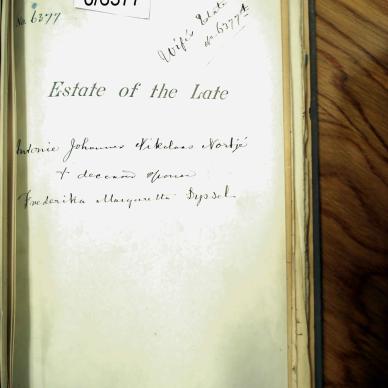 No. 6377
Wife's Estate
No. 6377A
Estate of the Late
Antonie Johannes Nikolaas Nortjé
+ deceased spouse
Frederika Margaretta Dyssel